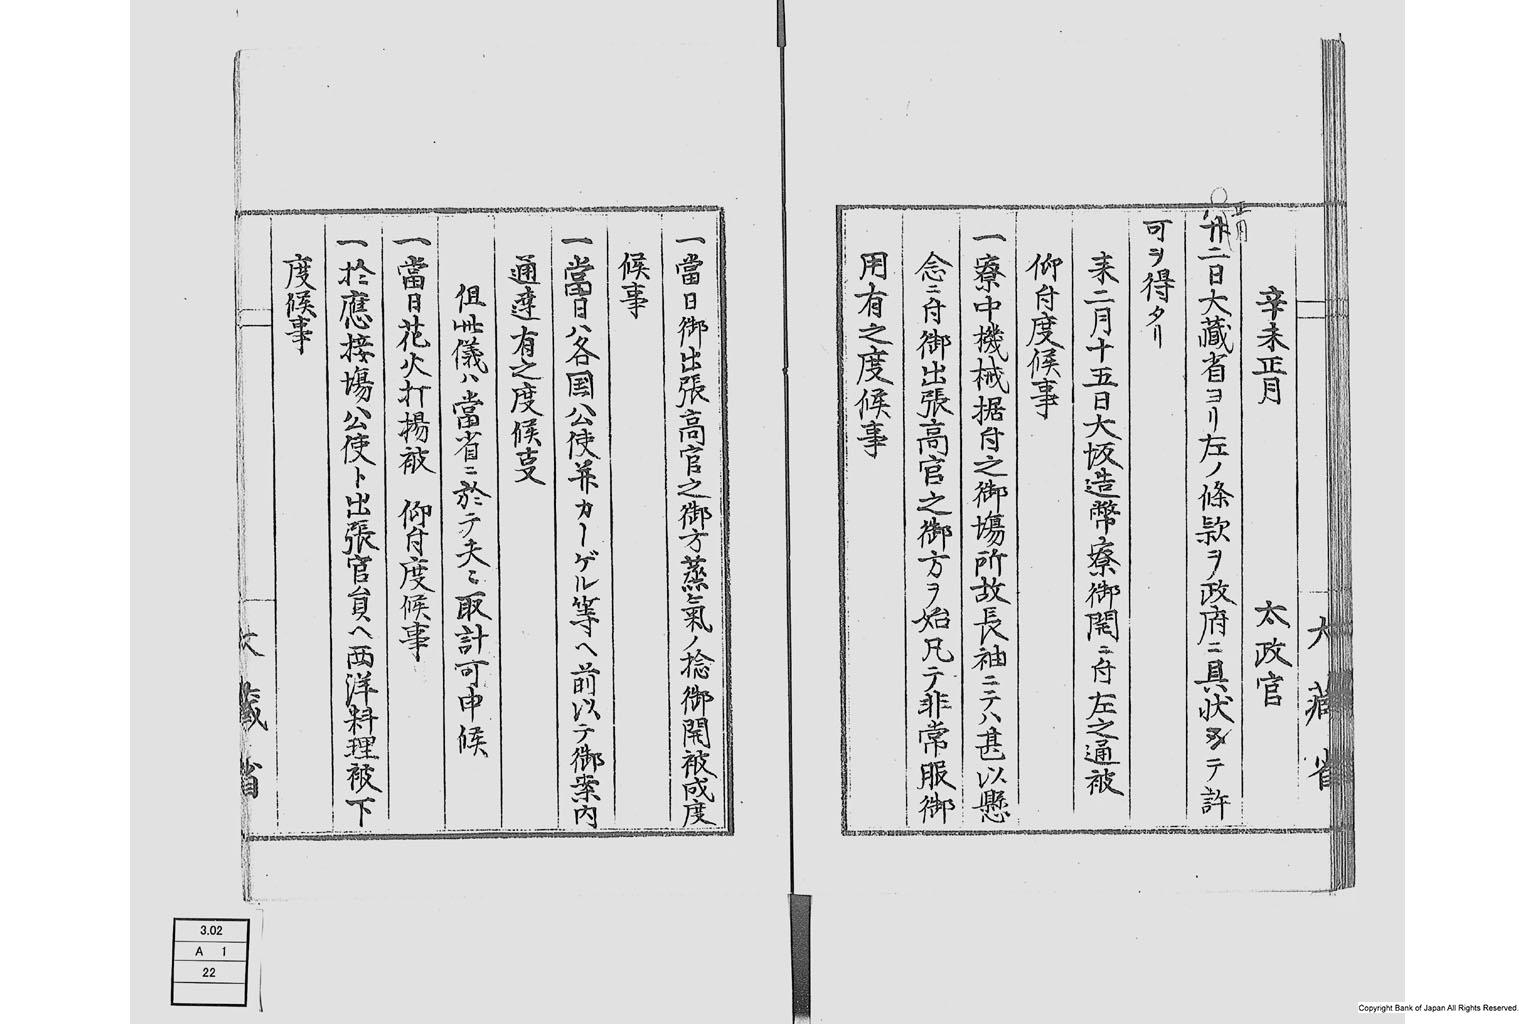 大藏省
辛未正月　太政官
正月
廿二日大藏省ヨリ左ノ條款ヲ政府ニ具状シテ許
可ヲ得タリ
来二月十五日大坂造幣寮御開ニ付左之通被
仰付度候事
一寮中機械据付之御場所故長袖ニテハ甚以懸
念ニ付御出張高官之御方ヲ始凡テ非常服御
用有之度候事
一當日御出張高官之御方蒸氣ノ捻御開被成度
候事
一當日ハ各国公使并カーゲル等ヘ前以テ御案内
通達有之度候叓
但此儀ハ當省ニ於テ夫〻取計可申候
一當日花火打揚被　仰付度候事
一於應接場公使ト出張官員ヘ西洋料理被下
度候事
大藏省
3.02
A 1
22
Copyright Bank of Japan All Rights Reserved.